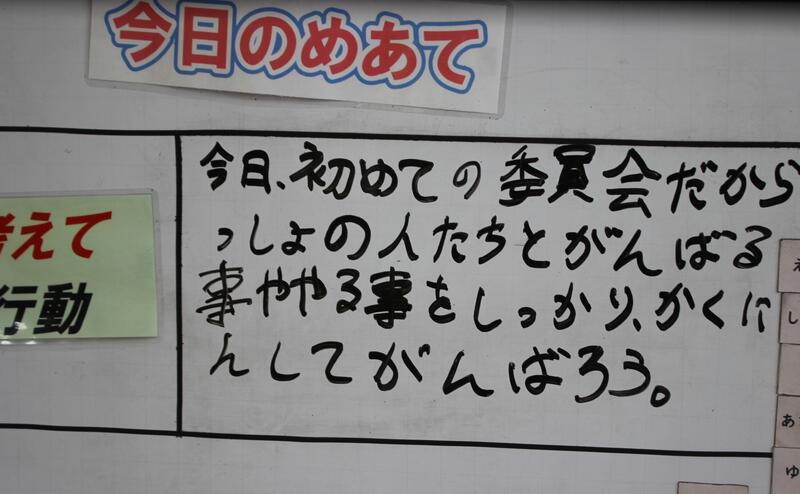 今日のめあて
今日、初めての委員会だから
っしょの人たちとがんばる
事ややる事をしっかり、かくに
んしてがんばろう。
考えて
行動
え
し
あ
ゆ